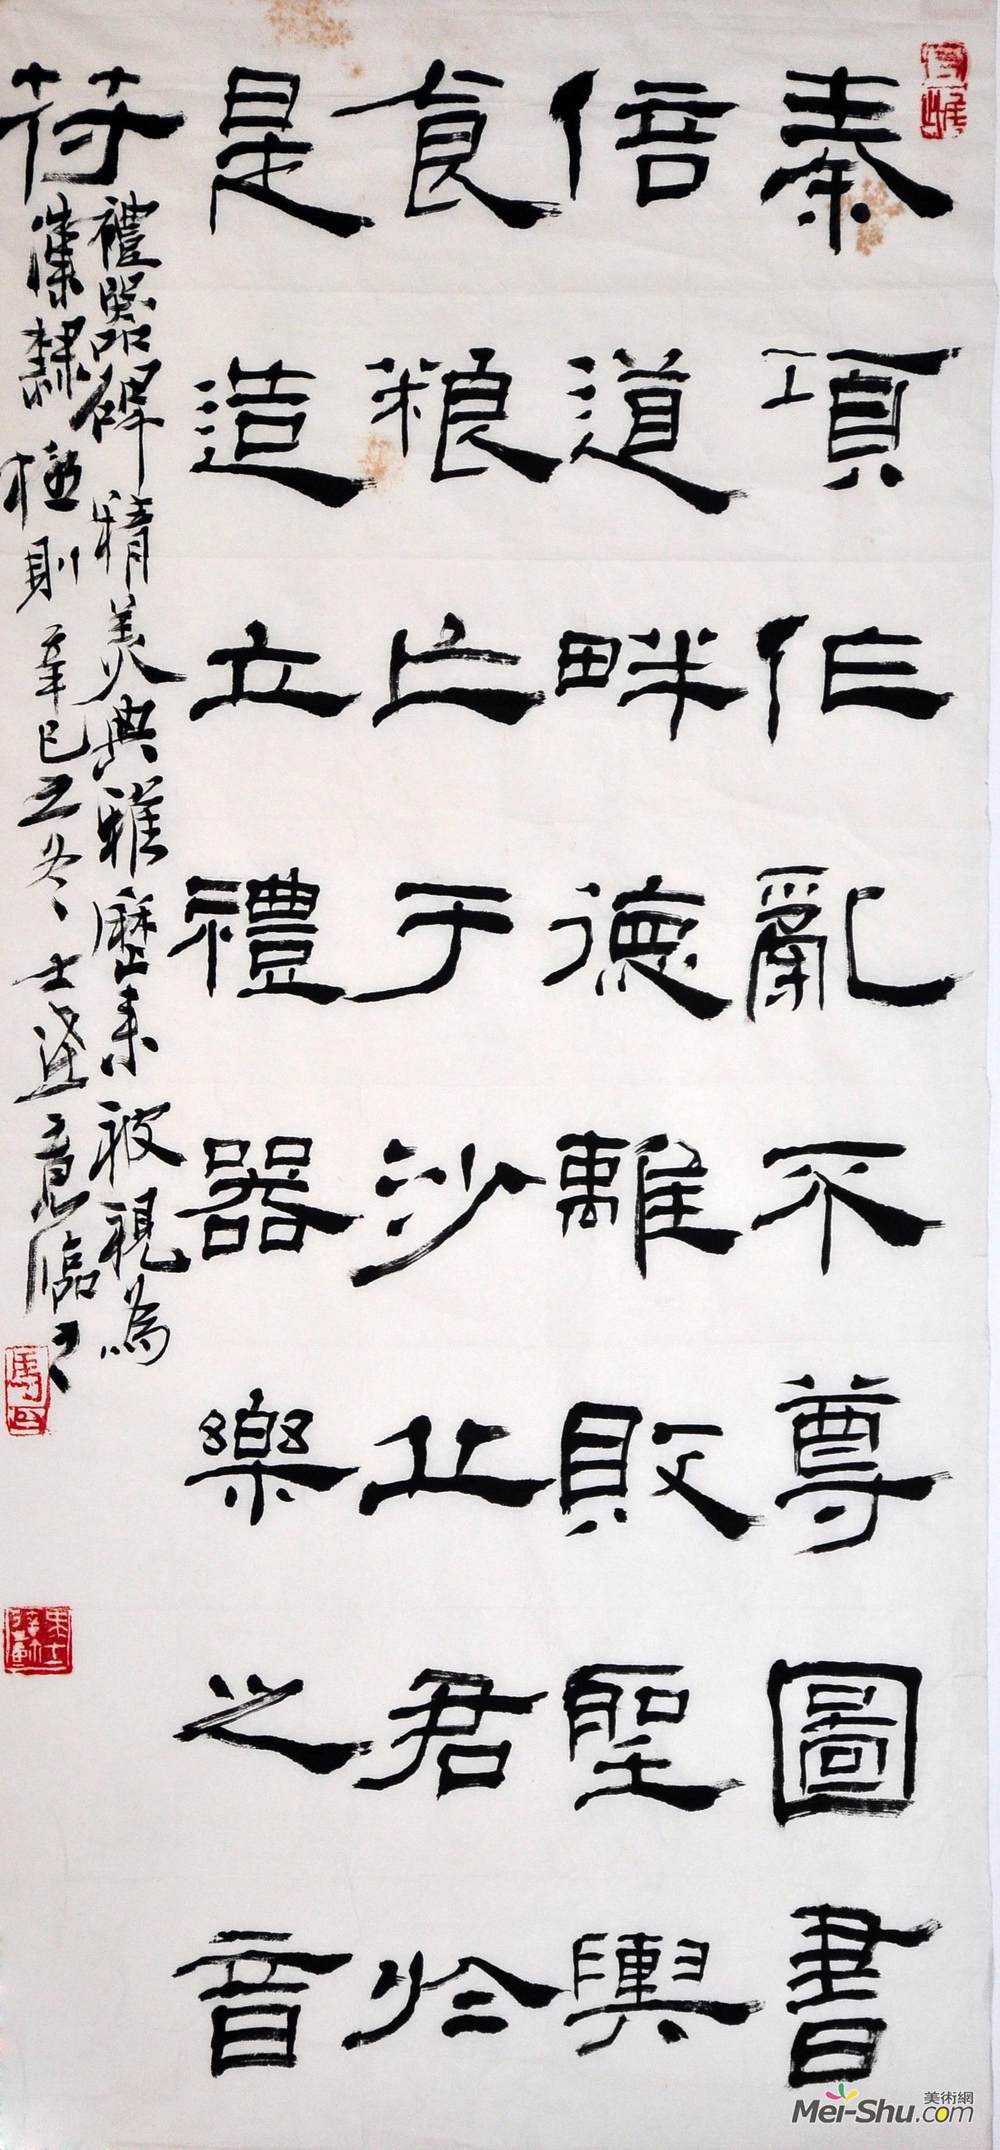 秦項作亂不尊圖書
倍道畔德離敗聖輿
食粮亡于沙丘君於
是造立禮器樂之音
符
禮器碑精美典雅歷来被視為
漢隸極則辛巳之冬士達意臨之
美術網
Mei-Shu.com